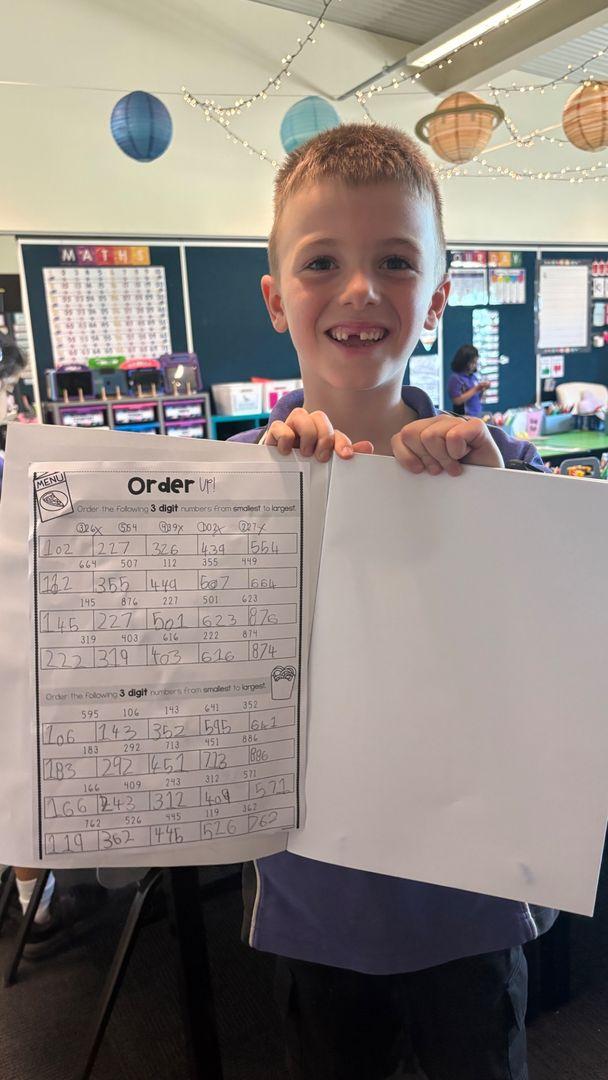 MATHS
MENU
Order UP!
Order the following 3 digit numbers from smallest to largest.
326x 554 439x 102x 227x
102 227 326 439 554
664 507 112 355 449
112 355 449 507 664
145 876 227 501 623
145 227 501 623 876
319 403 616 222 874
222 319 403 616 874
Order the following 3 digit numbers from smallest to largest.
595 106 143 641 352
106 143 352 595 641
183 292 713 451 886
183 292 451 713 886
166 409 243 312 571
166 243 312 409 571
762 526 445 119 362
119 362 445 526 762